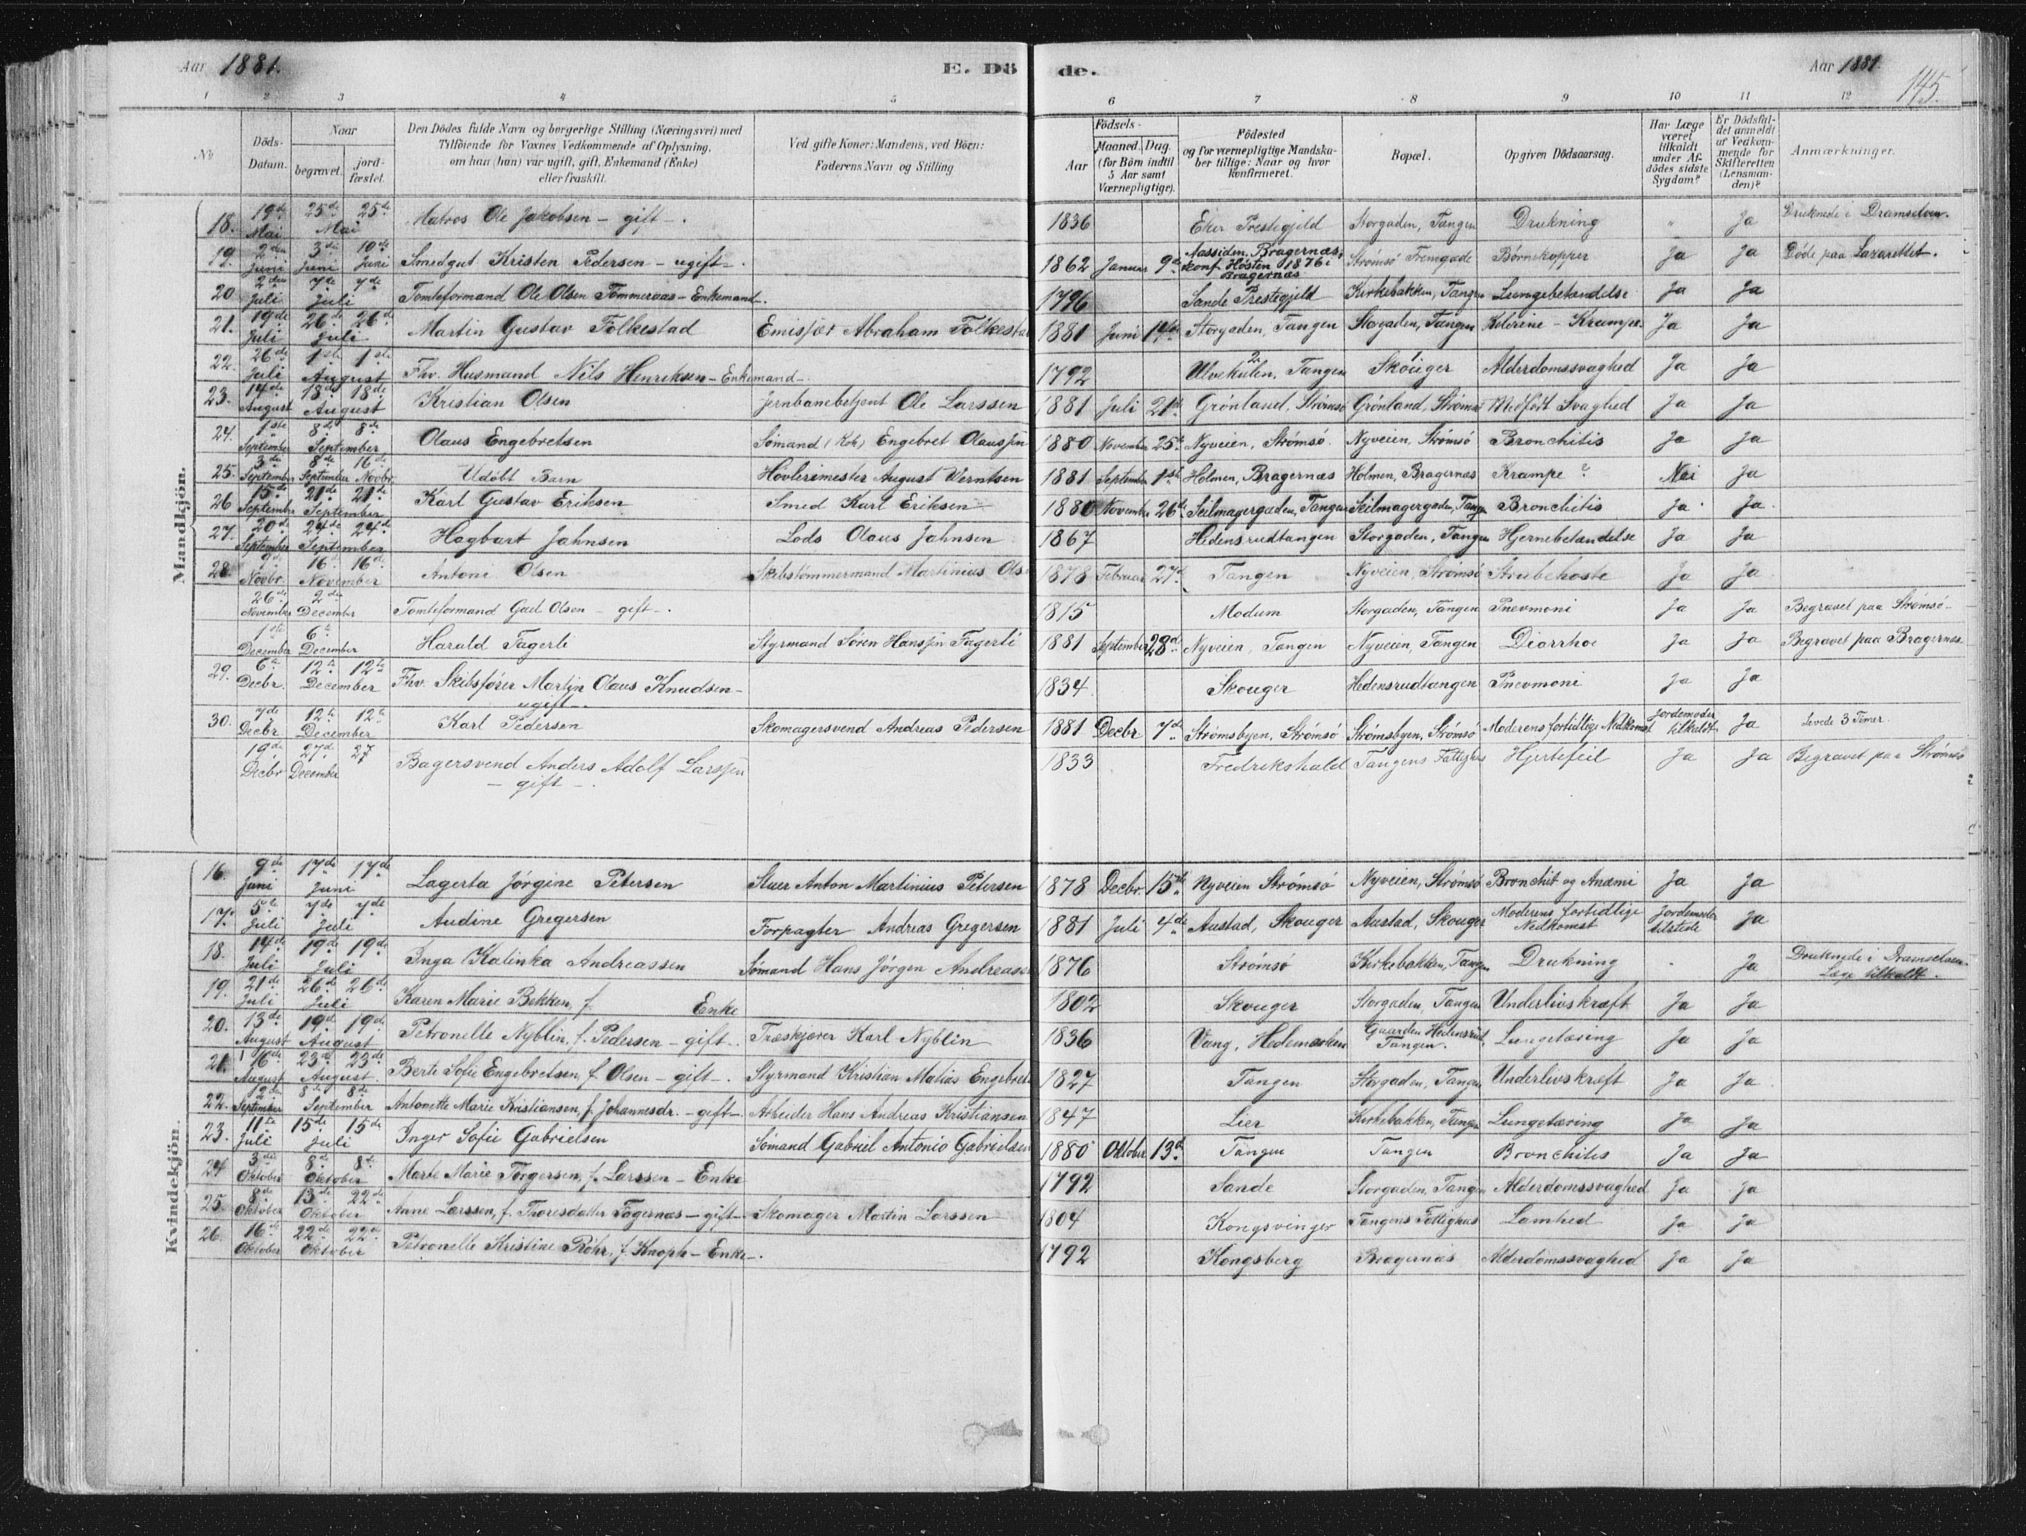 Aar 1881. E. Dö de. Aar 1881. 145.
1 2 3 4 5 6 7 8 9 10 11 12
No Döds-Datum. Naar begravet. jord-fæstet. Den Dödes fulde Navn og borgerlige Stilling (Næringsvei) med Tilföiende for Voxnes Vedkommende af Oplysning, om han (hun) var ugift, gift, Enkemand (Enke) eller fraskilt. Ved gifte Koner: Mandens, ved Börn: Faderens Navn og Stilling Födsels- Aar Maaned. Dag. (for Börn indtil 5 Aar samt Værnepligtige). Födested og for værnepligtige Mandskaber tillige: Naar og hvor konfirmeret. Bopæl. Opgiven Dödsaarsag. Har Læge været tilkaldt under Afdödes sidste Sygdom? Er Dödsfaldet anmeldt af Vedkommende for Skifteretten (Lensmanden)? Anmærkninger.
Mandkjön.
18. 19de Mai 25de 25de Mai Matros Ole Jakobsen - gift -. 1836 Eker Prestegjeld Storgaden, Tangen Drukning " Ja Druknede i Dramselven.
19. 2den Juni 3de Juni 10de Juni Smedgut Kristen Pedersen - ugift -. 1862 Januar 9de Bragernæs, konf. Høsten 1876 i Bragernæs Strømsø Tremgade Børnekopper Ja Ja Døde paa Lazarettet.
20 2den Juli 7de 7de Juli Tomteformand Ole Olsen Tommeraas - Enkemand. 1796 Sande Prestegjeld Kirkebakken, Tangen Lungebetændelse Ja Ja
21. 19de Juli 26de 26de Juli Martin Gustav Folkestad Emisjær Abraham Folkestad 1881 Juni 14de Storgaden, Tangen Storgaden, Tangen Kolerine - Krampe. Ja Ja
22. 26de Juli 1ste 1ste August Fhv. Husmand Nils Henriksen - Enkemand -. 1792 Ulvekulen, Tangen Skouger Alderdomssvaghed Ja Ja
23. 14de August 18de 18de August Kristian Olsen Jernbanebetjent Ole Larssen 1881 Juli 21de Grønland, Strømsø Grønland, Strømsø Medfødt Svaghed Ja Ja
24. 1ste September 8de 8de September Olaus Engebretsen Sømand (Kok) Engebret Olaussen 1880 November 25de Nyveien, Strømsø. Nyveien, Strømsø Bronchitis Ja Ja
25. 3de September 8de September 16de Novbr Udøbt Barn Høvlerimester August Verntsen 1881 September 1ste Holmen, Bragernæs Holmen, Bragernæs Krampe? Nei Ja
26 15de September 21de 21de September Karl Gustav Eriksen Smed Karl Eriksen 1880 November 26de Seilmagergaden, Tangen Seilmagergaden, Tangen Bronchitis Ja. Ja.
27. 20de September 24de 24de September Hagbart Jahnsen Lods Olaus Jahnsen 1867 Hedensrudtangen Storgaden, Tangen Hjernebetændelse Ja Ja
28. 9de Novbr. 16. 16de November Antoni Olsen Skibstømmermand Martinius Olsen 1878 Februar 27de Tangen Nyveien, Strømsø Strubehoste Ja Ja
26de November 2de December Tomteformand Gael Olsen - gift -. 1815 Modum Storgaden, Tangen Pneumoni Ja Ja Begravet paa Strømsø.
1ste December 6te December Harald Fagerli Styrmand Søren Hanssen Fagerli 1881 September 28de Nyveien, Tangen Nyveien, Tangen Diarrhoe Ja Ja Begravet paa Bragernæs
29. 6te Decbr. 12te 12te December Fhv. Skibsfører Martin Olaus Knudsen - ugift -. 1834. Skouger Hedensrudtangen Pneumoni Ja Ja
30. 7de Decbr 12te 12te December Karl Pedersen Skomagersvend Andreas Pedersen 1881 Decbr 7de Strømsbyen, Strømsø Strømsbyen, Strømsø Moderens fortidlige Nedkomst Jordemoder tilkaldt Ja Levede 3 Timer.
19de Decbr 27de December 27 Bagersvend Anders Adolf Larssen - gift -. 1833 Fredrikshald Tangens Fattighus Hjertefeil Ja Ja Begravet paa Strømsø
Kvindekjön.
16. 9de Juni 17de 17de Juni Lagerta Jørgine Petersen Stuer Anton Martinius Petersen 1878 Decbr 15de Nyveien Strømsø Nyveien, Strømsø Bronchit og Anæmi Ja Ja
17. 5te Juli 7de 7de Juli Audine Gregersen Forpagter Andreas Gregersen 1881 Juli 4de Austad, Skouger Austad, Skouger Moderens fortidlige Nedkomst Jordemoder tilstede Ja
18. 14de Juli 19de 19de Juli Inga Katinka Andreassen Sømand Hans Jørgen Andreassen 1876 Strømsø Kirkebakken, Tangen Drukning - Ja Druknede i Dramselven. Læge tilkaldt.
19. 21de Juli 26de 26de Juli Karen Marie Bekken, f. Enke 1802 Skouger Storgaden, Tangen Underlivskræft Ja Ja
20. 13de August 19de 19de August Petronelle Nyblin, f. Pedersen - gift -. Træskjærer Karl Nyblin 1836 Vang, Hedemarken Gaarden Hedensrud, Tangen. Lungetæring Ja Ja
21. 16de August 23de 23de August Berte Sofie Engebretsen, f. Olsen - gift -. Styrmand Kristian Matias Engebretsen 1827 Tangen Storgaden, Tangen Underlivskræft Ja Ja
22. 2de September 8de 8de September Antonette Marie Kristiansen, f. Johannesdr. - gift -. Arbeider Hans Andreas Kristiansen 1847 Lier Kirkebakken, Tangen Lungetæring Ja Ja
23. 11te Juli 15de 15de Juli Inger Sofie Gabrielsen Sømand Gabriel Antonio Gabrielsen 1880 Oktober 13de Tangen Tangen Bronchites Ja Ja
24. 3de Oktober 8de 8de Oktober Marte Marie Torgersen, f. Larssen - Enke 1792 Sande Storgaden, Tangen Alderdomssvaghed Ja Ja
25. 8de Oktober 13de 22de Oktober Anne Larssen, f. Thoresdatter Fagernæs - gift - Skomager Martin Larssen 1804 Kongsvinger Tangens Fattighus Lamhed Ja Ja
26. 16de Oktober 22de 22de Oktober Petronelle Kristine Röhr, f. Knoph - Enke -. 1792 Kongsberg Bragernæs Alderdomssvaghed Ja Ja